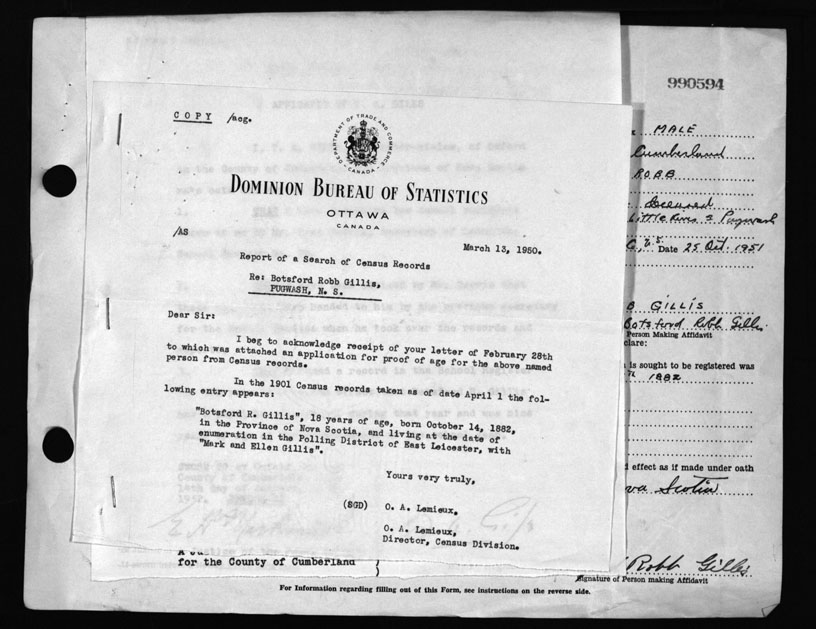 990594
COPY /acg.
DEPARTMENT OF TRADE AND COMMERCE
CANADA
DOMINION BUREAU OF STATISTICS
OTTAWA
CANADA
/AS
March 13, 1950.
Report of a Search of Census Records
Re: Botsford Robb Gillis,
PUGWASH, N. S.
Dear Sir:
I beg to acknowledge receipt of your letter of February 28th
to which was attached an application for proof of age for the above named
person from Census records.
In the 1901 Census records taken as of date April 1 the fol-
lowing entry appears:
"Botsford R. Gillis", 18 years of age, born October 14, 1882,
in the Province of Nova Scotia, and living at the date of
enumeration in the Polling District of East Leicester, with
"Mark and Ellen Gillis".
Yours very truly,
(SGD) O. A. Lemieux.
O. A. Lemieux,
Director, Census Division.
for the County of Cumberland
MALE
Cumberland
ROBB
Deceased
Pugwash
Date 25 Oct. 1951
B GILLIS
Botsford Robb Gillis
Person Making Affidavit
clare:
is sought to be registered was
1882
d effect as if made under oath
va Scotia
Robb Gillis
Signature of Person making Affidavit
For Information regarding filling out of this Form, see instructions on the reverse side.